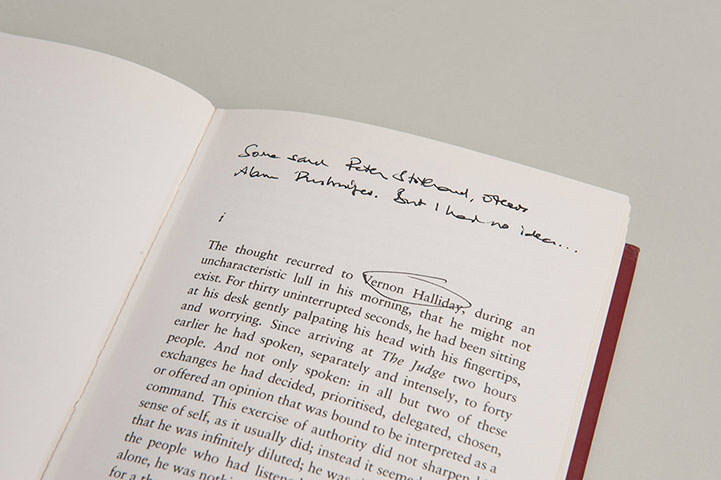 Some said Peter Stothard, others
Alan Rusbridger. But I had no idea...
i
The thought recurred to Vernon Halliday, during an
uncharacteristic lull in his morning, that he might not
exist. For thirty uninterrupted seconds, he had been sitting
at his desk gently palpating his head with his fingertips,
and worrying. Since arriving at The Judge two hours
earlier he had spoken, separately and intensely, to forty
people. And not only spoken: in all but two of these
exchanges he had decided, prioritised, delegated, chosen,
or offered an opinion that was bound to be interpreted as a
command. This exercise of authority did not sharpen
sense of self, as it usually did; instead it
that he was infinitely diluted; he was
the people who had
alone, he was
for a